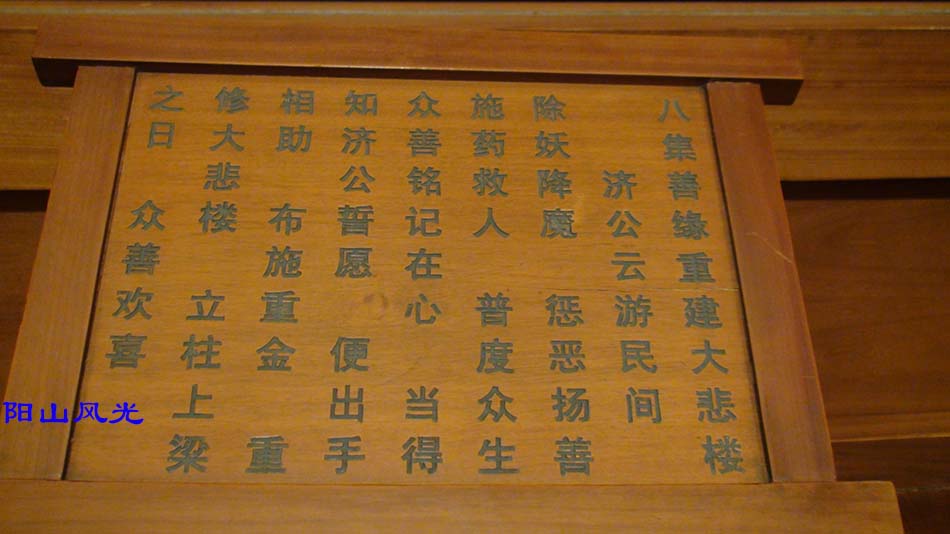 八集善缘重建大悲楼
济公云游民间
除妖降魔 惩恶扬善
施药救人 普度众生
众善铭记在心 当得
知济公誓愿 便出手
相助 布施重金 重
修大悲楼 立柱上梁
之日 众善欢喜
阳山风光